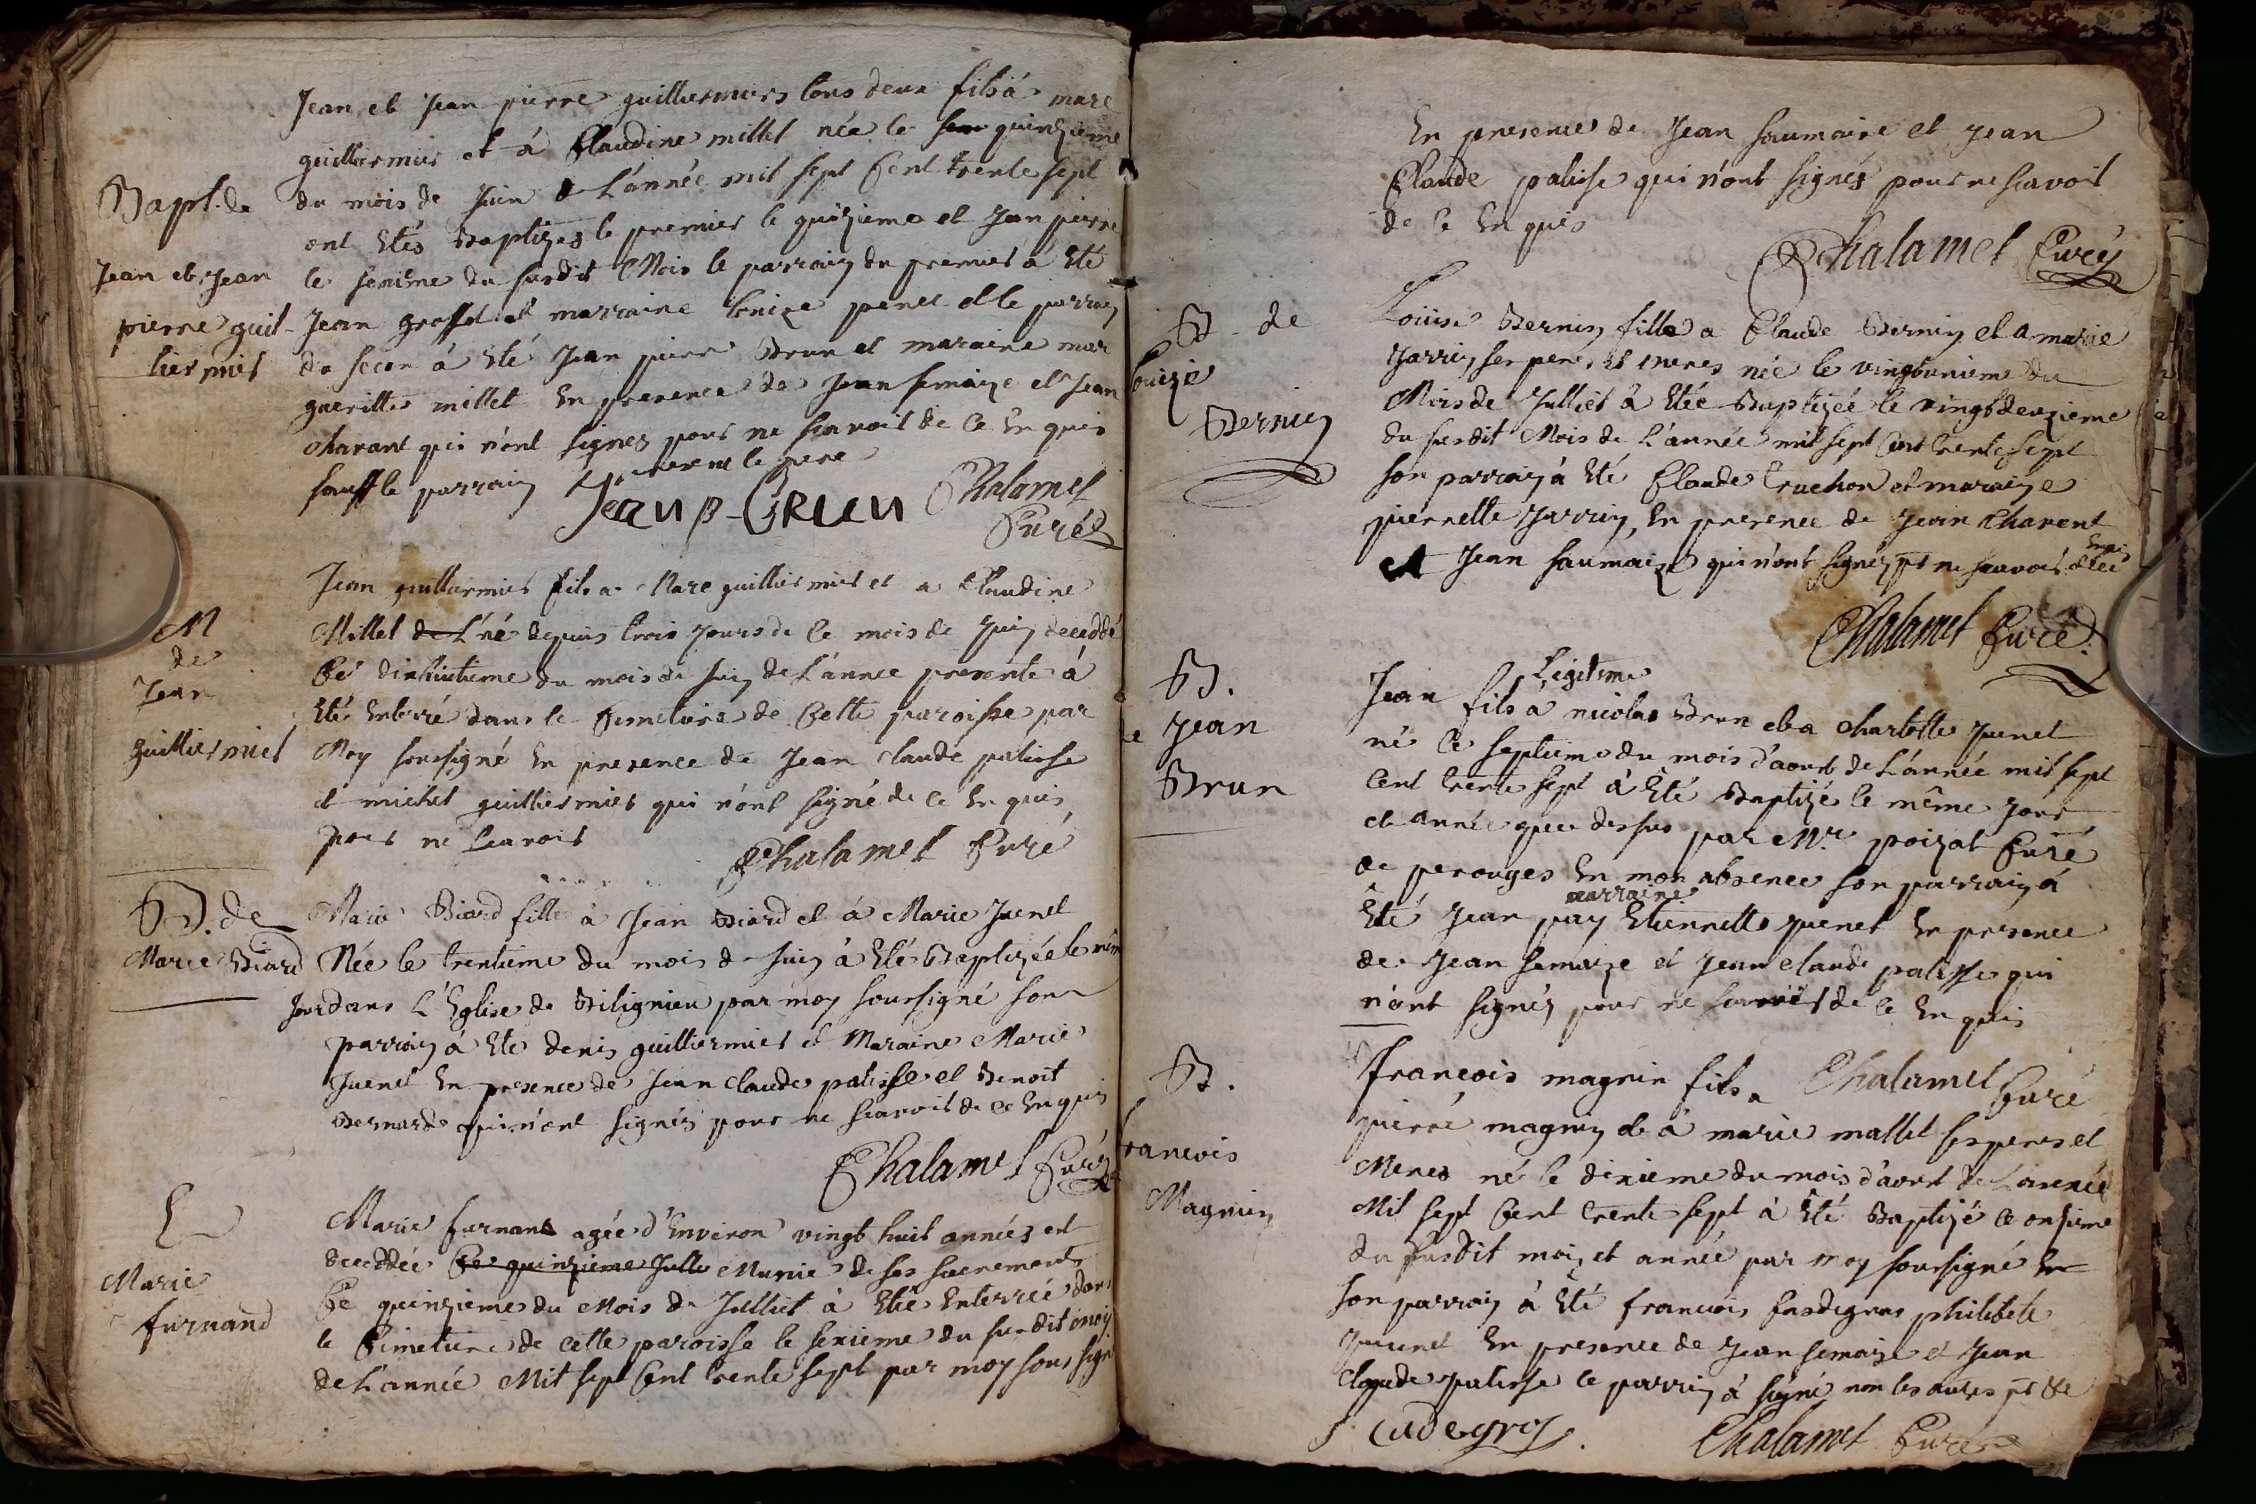 Bapt. de
Jean et Jean
pierre guil-
liermier
Jean et Jean pierre guilliermiers tous deux fils à marc
guilliermier et à Claudine millet née le quinzieme
du mois de Juin L'année mil sept Cent trente sept
ont Etés Baptizes le premier le quizieme et Jean pierre
le seziême du susdit Mois le parrain du premier à Eté
Jean et marraine penet et le parrain
du secon à Eté Jean pierre Brun et maraine mar
gueritte millet En presence de Jean semaize et Jean
charant qui n'ont signes pour ne scavoir de ce En quis
sauf le parrain le pere
Jean p-Brun Chalamel
Curé
M
de
Jean
guilliermier
Jean guilliermier fils a Marc guilliermier et a Claudine
Millet de L'né depuis trois Jours de ce mois de Juin deceddé
Ce dixhuitieme du mois de Juin de L'annee presente à
Eté Enterré dans le Cemetiere de Cette paroisse par
Moy soussigné En presence de Jean Claude palisse
et michel guilliermier qui n'ont signé de ce En quis
pour ne scavoir
Chalamel Curé
B. de
Marie Biard
Marie Biard fille à Jean Biard et à Marie Juenet
Née le trentieme du mois de Juin à Eté Baptizée le mêm
Jour dans L'Eglise de Bilignieu par moy soussigné son
parrain à Eté denis guilliermier et Maraine Marie
Juenet En presence de Jean Claude palisse et Benoit
Bernard qui n'ont signés pour ne scavoir de ce En quis
Chalamel Curé
E
Marie
furnand
Marie furnand agée d'Environ vingt huit années est
deceddée Ce quinzieme Julle Munie de ses sacrements
Ce quinzieme du Mois de Julliet à Etée Enterrée dans
le Cimetiere de cette paroisse le sezieme du susdit mois
de L'année Mil sept Cent trente sept par moy sous signé
En presence de Jean saumaire et Jean
Claude palisse qui n'ont signés pour ne scavoir
de ce En quis
Chalamel Curé
B. de
Louize
Bernin
Louise Bernin fille a Claude Bernin et a marie
Jarrin ses peres et meres née le vingtunieme du
Mois de Julliet à Etée Baptizée le vingtdeuzieme
du susdit Mois de L'année mil sept Cent trente sept
son parrain à Eté Claude truchon et maraine
pierrette Jarrin, En presence de Jean Charent
et Jean saumaize qui n'ont signés pr ne scavoir de ce
Enquis
Chalamel Curé
B.
Jean
Brun
Legitime
Jean fils à nicolas Brun et a charlotte Juenet
né le septieme du mois d'aoust de L'année mil sept
Cent trente sept à Eté Baptizé le même Jour
et année que dessus par Mr. poizat Curé
de perouges En mon absence son parrain à
marraine
Eté Jean pay Etiennette Juenet En presence
de Jean semaize et Jean claude palisse qui
n'ont signés pour ne scavoir de ce En quis
Chalamel Curé
B.
francois
Magnin
francois magnin fils a
pierre magnin et à marie mallet ses peres et
Meres né le dixieme du mois d'aout de L'année
Mil sept Cent trente sept à Eté Baptizé le onzieme
du susdit mois et année par moy soussigné
son parrain à Eté francois philiberte
Juenet En presence de Jean semaize et Jean
Claude palisse le parrain à signé non les autres pr
Chalamel Curé